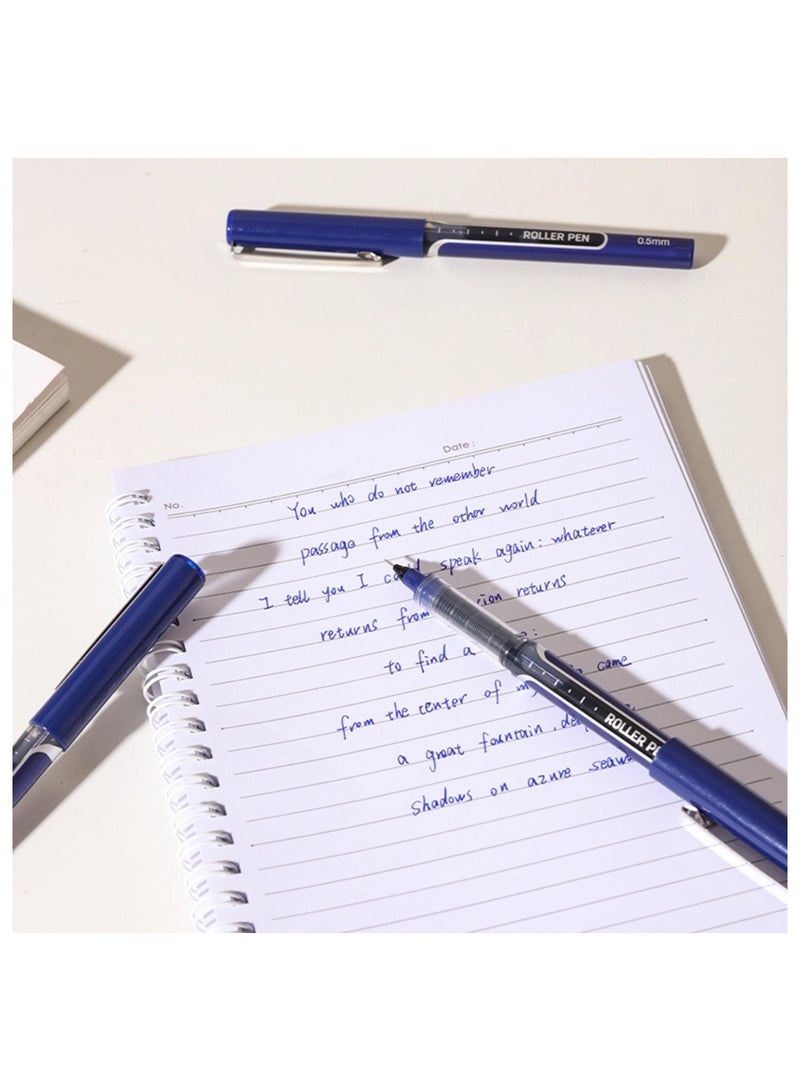 ROLLER PEN 0.5mm
Date:
No.
You who do not remember
passage from the other world
I tell you I speak again: whatever
returns from returns
to find a :
came
from the center of
a great fountain,
shadows on azure
ROLLER PE